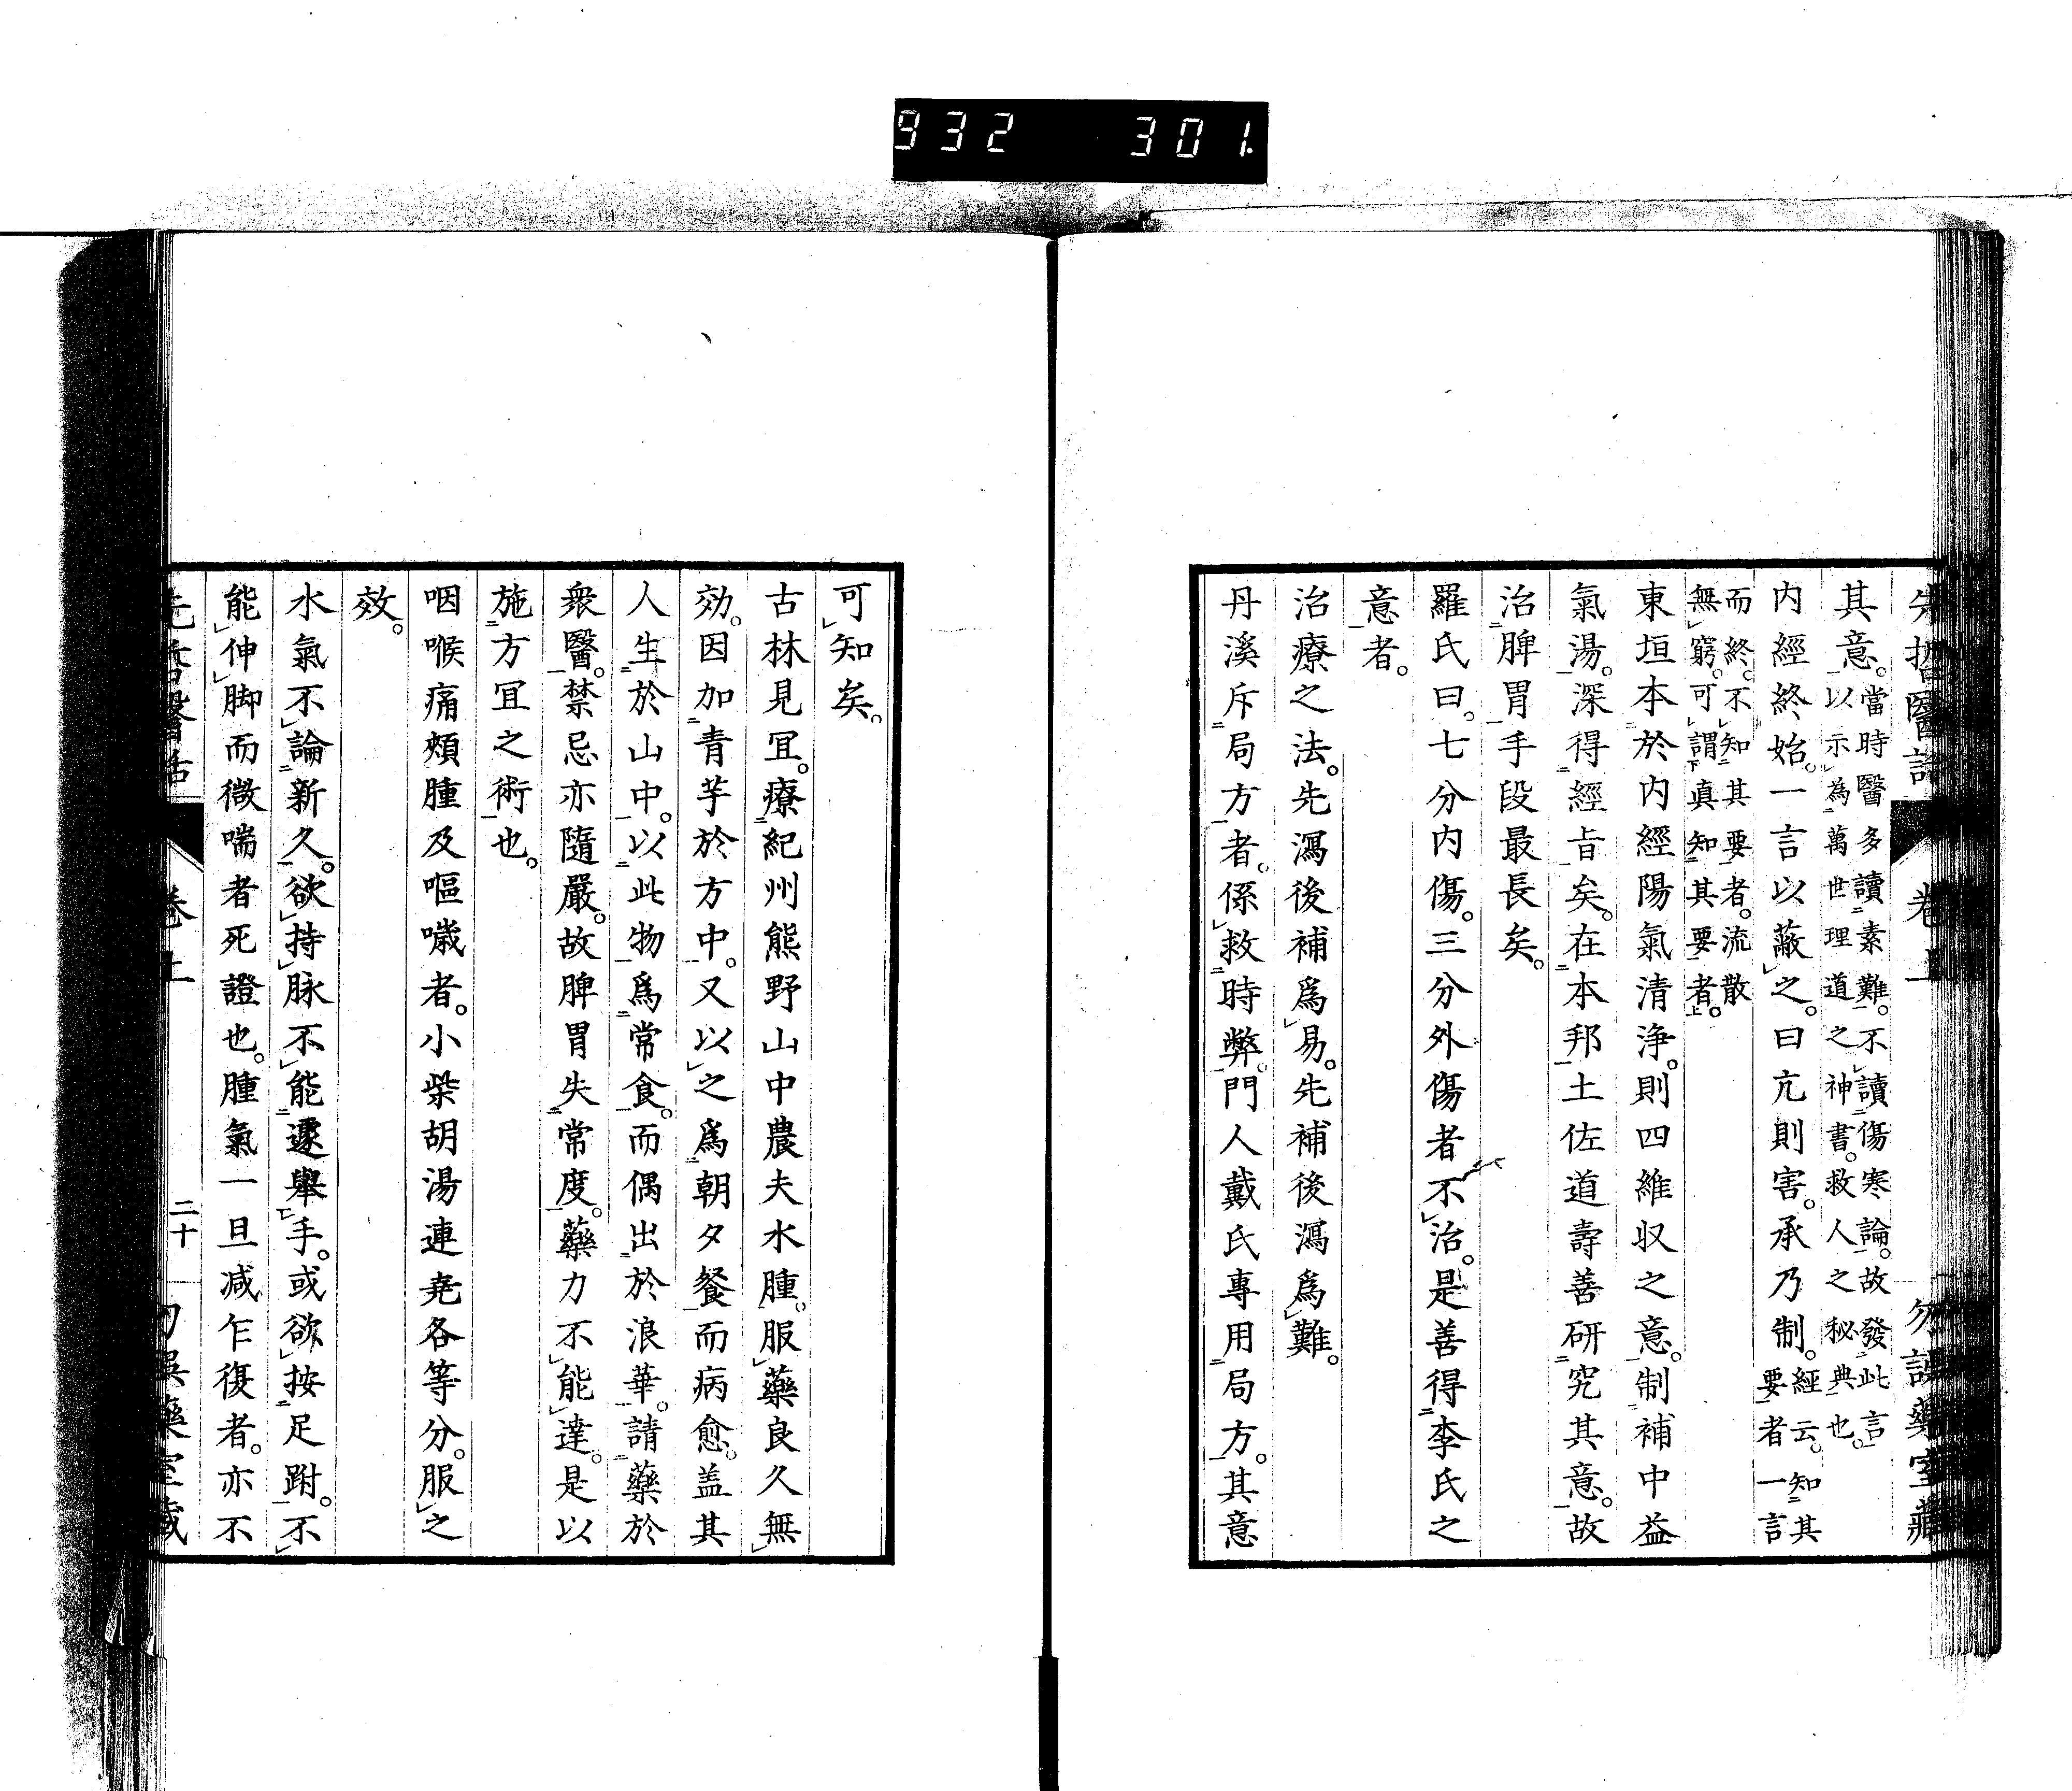 932 301.
先哲醫話 卷上 勿誤藥室藏
其意。當時醫多讀素難。不讀傷寒論。故發此言
以示為萬世理道之神書。救人之秘典也。
内經終始。一言以蔽之。曰亢則害。承乃制。經云。知其
要者一言
而終。不知其要者。流散
無窮。可謂真知其要者。
東垣本於内經陽氣清浄。則四維収之意。制補中益
氣湯。深得經旨矣。在本邦土佐道壽善研究其意。故
治脾胃手段最長矣。
羅氏曰。七分内傷。三分外傷者不治。是善得李氏之
意者。
治療之法。先瀉後補爲易。先補後瀉爲難。
丹溪斥局方者。係救時弊。門人戴氏專用局方。其意
可知矣。
古林見宜。療紀州熊野山中農夫水腫。服藥良久無
効。因加青芋於方中。又以之爲朝夕餐而病愈。盖其
人生於山中。以此物爲常食。而偶出於浪華。請藥於
衆醫。禁忌亦隨嚴。故脾胃失常度。藥力不能達。是以
施方宜之術也。
咽喉痛頬腫及嘔噦者。小柴胡湯連尭各等分。服之
效。
水氣不論新久。欲持脉不能遽舉手。或欲按足跗。不
能伸脚而微喘者死證也。腫氣一旦减乍復者。亦不
先哲醫話 卷上 二十 勿誤藥室藏